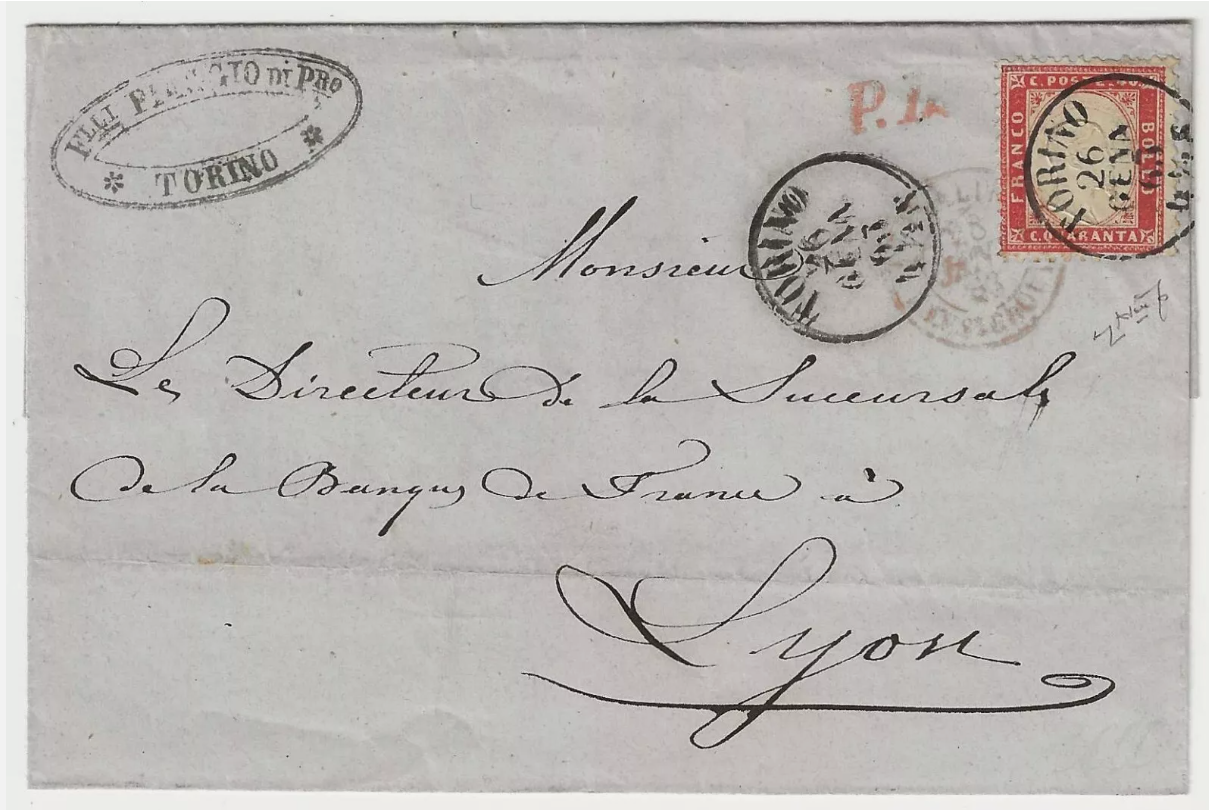 FLLI DI PRO
TORINO
C. POSTE
FRANCO
BOLLO
C. QUARANTA
TORINO
26
GENN
63
TORINO
26
GENN
63
Monsieur
Le Directeur de la Succursale
de la Banque de France à
Lyon